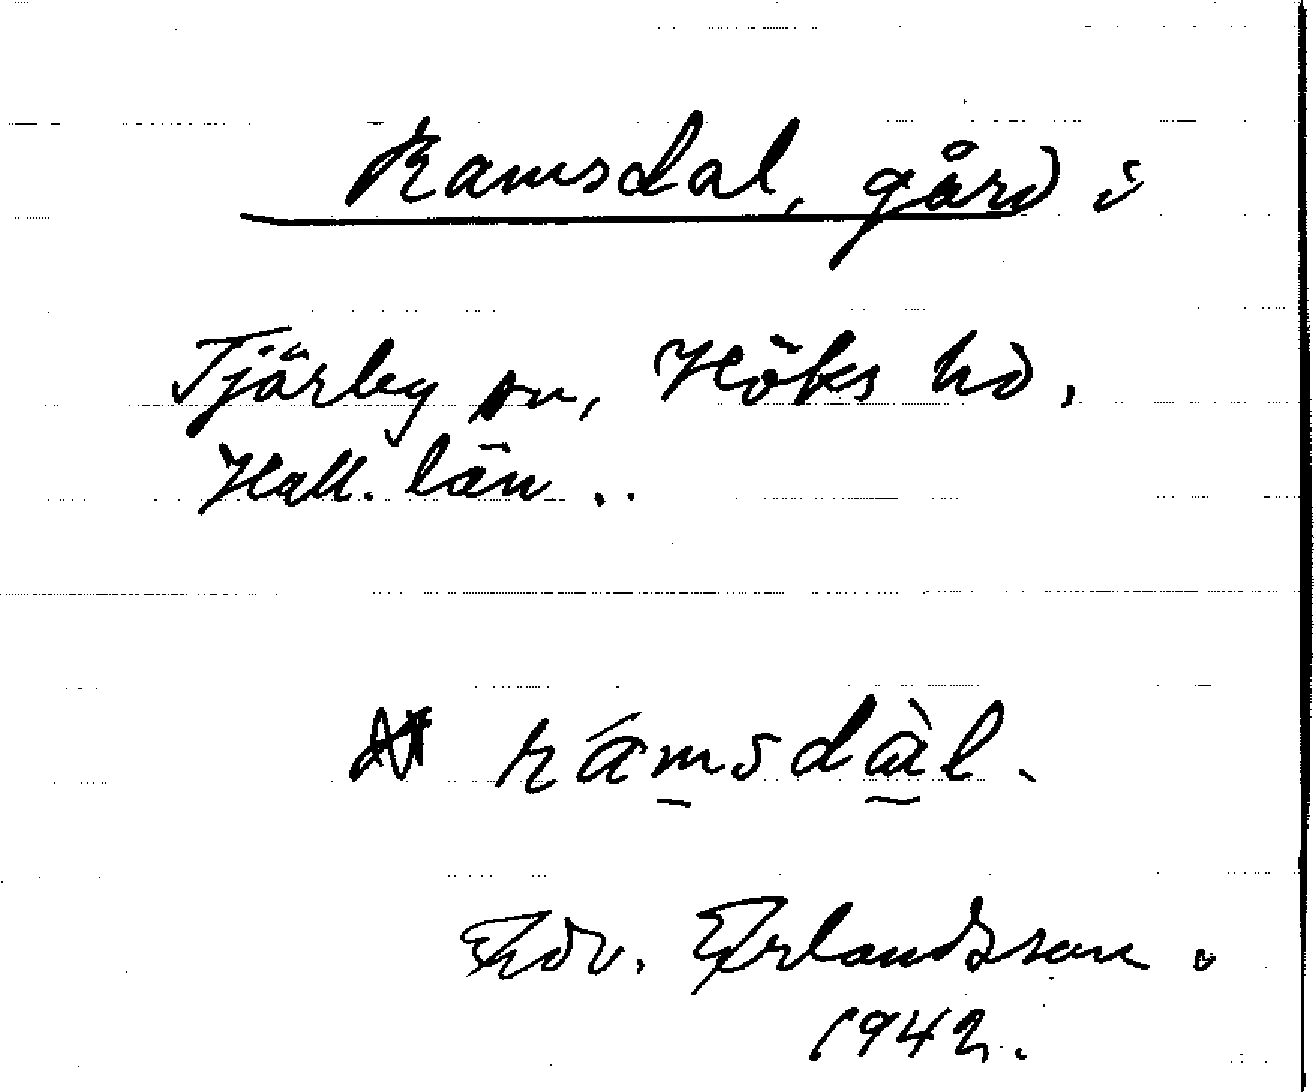 Ramsdal, gård i
Tjärby sn, Höks hd,
Hall. län..
rámsdàl.
Edv. Erlandsson.
1942.